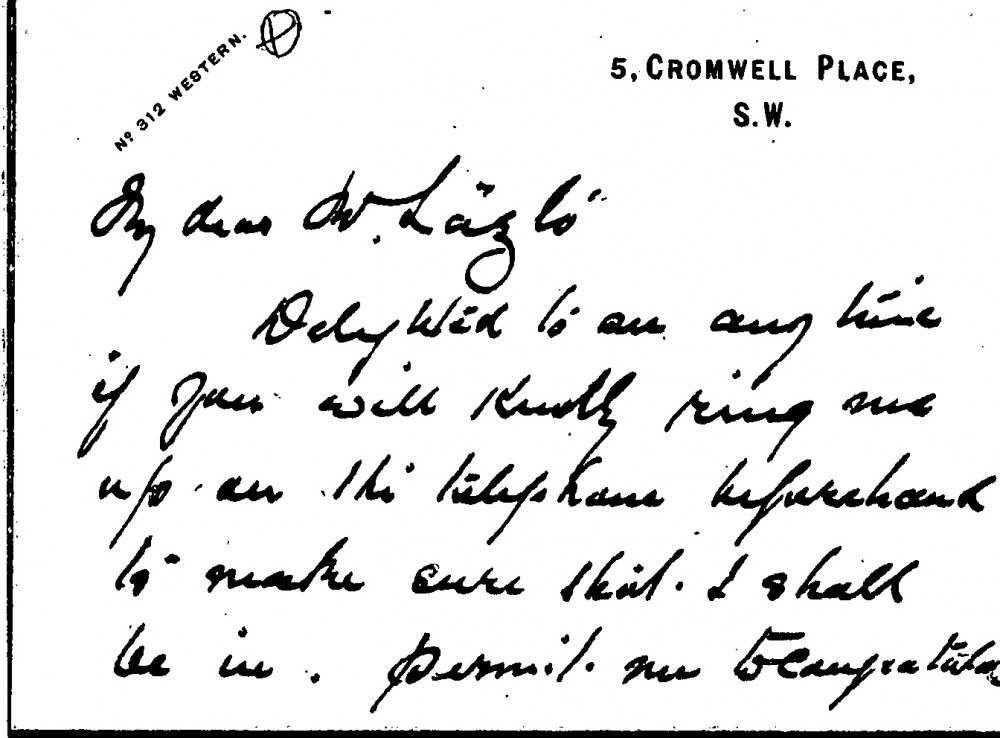 Nº 312 WESTERN.
5, CROMWELL PLACE,
S.W.
My dear Mr. László
Delighted to see any time
if you will kindly ring me
up on the telephone beforehand
to make sure that I shall
be in. Permit me to congratulate